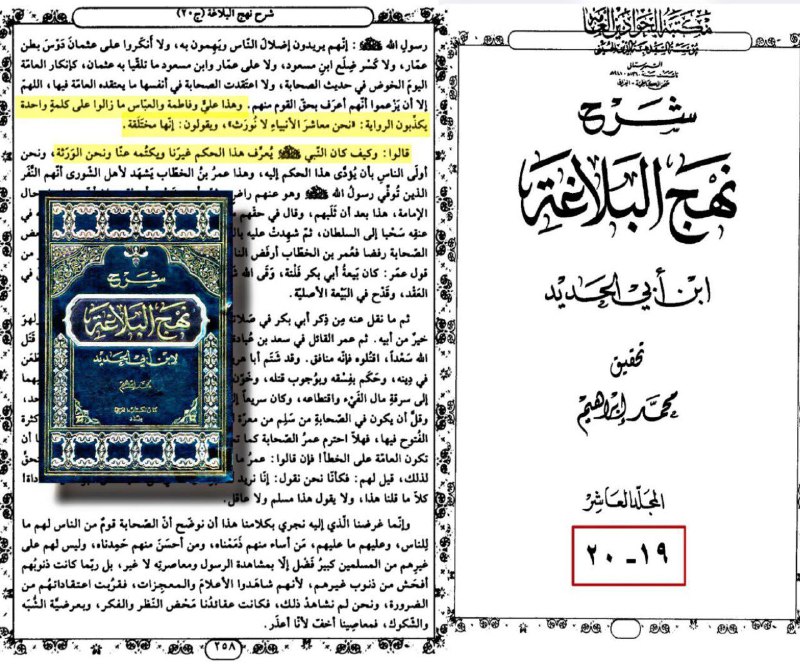 شرح نهج البلاغة (ج٢٠)
رسولِ الله ﷺ: إنّهم يريدون إضلالَ النّاس ويَهِمون به، ولا أنكَروا على عثمانَ دَوْسَ بطن
عمّار، ولا كَسْر ضِلَع ابنِ مسعود، ولا على عمّار وابن مسعود ما تلقّيا به عثمان، كإنكار العامّة
اليومَ الخوض في حديث الصحابة، ولا اعتقدت الصحابة في أنفسها ما يعتقده العامّة فيها، اللهمّ
إلا أن يَزْعموا أنّهم أعرَف بحقّ القوم منهم. وهذا عليٌّ وفاطمة والعبّاس ما زالوا على كلمةٍ واحدة
يكذّبون الرواية: «نحن معاشرَ الأنبياءِ لا نُورَث»، ويقولون: إنّها مختلَقة.
قالوا: وكيف كان النّبي ﷺ يُعرِّف هذا الحكم غيرَنا ويكتُمه عنّا ونحن الوَرَثة، ونحن
أولَى الناسِ بأن يُؤدَّى هذا الحكم إليه، وهذا عمرُ بنُ الخطّاب يَشهَد لأهل الشّورى أنّهم النَّفَر
الذين تُوفّي رسولُ الله ﷺ وهو عنهم راضٍ
الإمامة، هذا بعد أن ثَلَبهم، وقال في حقّهم
عنقِه سَحْبا إلى السلطان، ثمّ شهِدتْ عليه
الصحابة رفضا فعُمر بن الخطّاب أرفَض
قول عمر: كان بَيعةُ أبي بكر فَلْتة، وَقَى الله
العَقْد، وقَدْح في البَيْعة الأصليّة.
ثم ما نقل عنه مِن ذِكر أبي بكر في
خيرٌ من أبيه. ثم عمر القائل في سعد بن
الله سَعْداً، اقتُلوه فإنّه منافق. وقد شَتَم أبا
في دِينه، وحَكَم بفِسْقه وبوُجوب قتله،
إلى سرقةِ مالِ الفَيْء واقتطاعه، وكان سريعاً
وقلَّ أن يكون في الصّحابة من سَلِم من
الفُتوح فيها، فهلّا احترم عمرُ الصّحابة كما
تكون العامّة على الخطأ! فإن قالوا: عمرُ ما
لذلك، قيل لهم: فكأنّا نحن نقول: إنّا نريد
كلاّ ما قلنا هذا، ولا يقول هذا مسلم ولا عاقل.
وإنّما غرضنا الّذي إليه نجري بكلامنا هذا أن نوضّح أنّ الصّحابة قومٌ من الناس لهم ما
لِلناس، وعليهم ما عليهم، مَن أساء منهم ذَمَمْناه، ومن أحسَنَ منهم حَمِدناه، وليس لهم على
غيرِهم من المسلمين كبيرُ فَضْل إلّا بمشاهدة الرسول ومعاصرتِهِ لا غير، بل ربّما كانت ذنوبُهم
أفحَش من ذنوب غيرِهم، لأنهم شاهَدُوا الأعلامَ والمعجِزات، فقَرُبت اعتقاداتُهم من
الضرورة، ونحن لم نشاهدْ ذلك، فكانت عقائدُنا مَحْض النّظر والفكر، وبعرضيَّة الشُبَه
والشّكوك، فمعاصِينا أخفّ لأنّا أعذَر.
٢٥٨
شرح
نهج البلاغة
لابن أبي الحديد
محمد إبراهيم
شرح
نهج البلاغة
ابن أبي الحديد
تحقيق
محمد إبراهيم
المجلد العاشر
١٩ - ٢٠